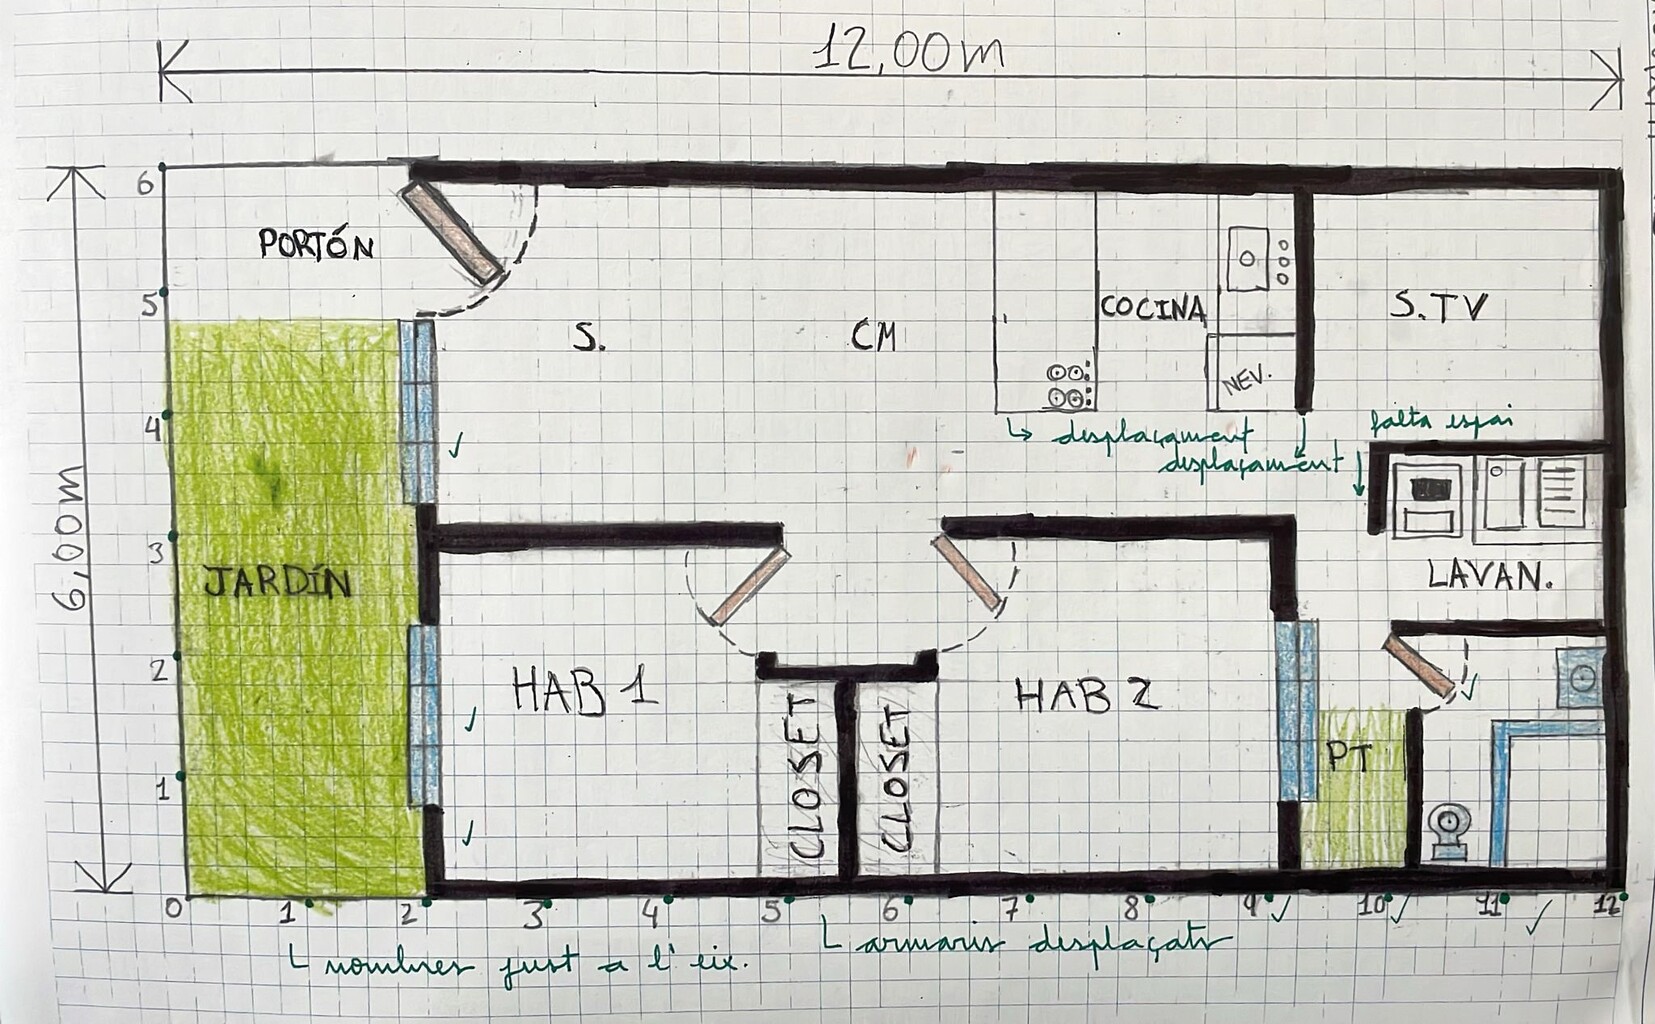 12,00m
6
PORTÓN
5
COCINA
S.TV
S.
CM
NEV.
4
falta espai
↳ desplaçament
desplaçament
6,00m
3
JARDÍN
LAVAN.
2
HAB 1
HAB 2
CLOSET
CLOSET
PT
1
0 1 2 3 4 5 6 7 8 9 10 11 12
nombres just a l'eix.
armaris desplaçats